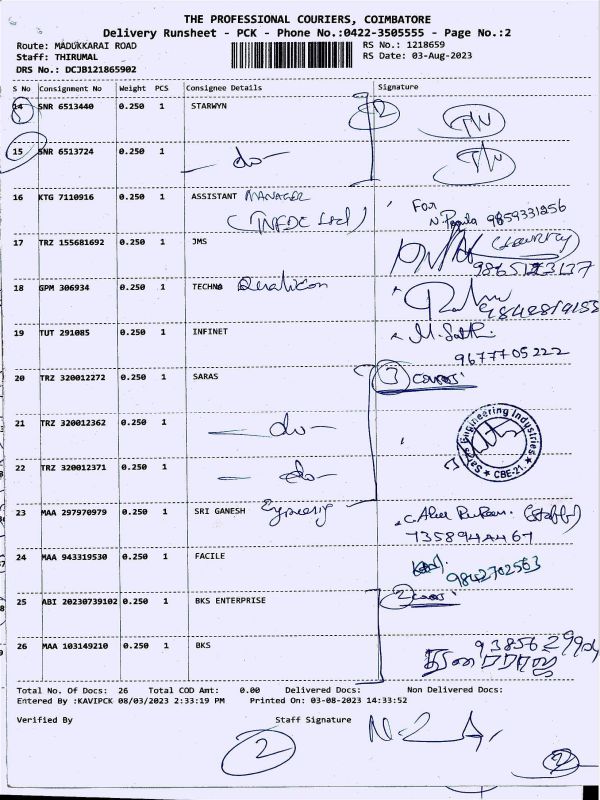 THE PROFESSIONAL COURIERS, COIMBATORE
Delivery Runsheet - PCK - Phone No.:0422-3505555 - Page No.:2
Route: MADUKKARAI ROAD RS No.: 1218659
Staff: THIRUMAL RS Date: 03-Aug-2023
DRS No.: DCJB121865902
S No Consignment No Weight PCS Consignee Details Signature
14 SNR 6513440 0.250 1 STARWYN 2
15 SNR 6513724 0.250 1 - do -
16 KTG 7110916 0.250 1 ASSISTANT MANAGER For
(TNFDC Ltd) 9859331256
17 TRZ 155681692 0.250 1 JMS
18 GPM 306934 0.250 1 TECHNO
19 TUT 291085 0.250 1 INFINET
9677705222
20 TRZ 320012272 0.250 1 SARAS 3
21 TRZ 320012362 0.250 1 - do -
Saras Engineering Industries
22 TRZ 320012371 0.250 1 - do - CBE-21.
23 MAA 297970979 0.250 1 SRI GANESH (Staff)
24 MAA 943319530 0.250 1 FACILE
9842702563
25 ABI 20230739102 0.250 1 BKS ENTERPRISE 2
26 MAA 103149210 0.250 1 BKS
Total No. Of Docs: 26 Total COD Amt: 0.00 Delivered Docs: Non Delivered Docs:
Entered By :KAVIPCK 08/03/2023 2:33:19 PM Printed On: 03-08-2023 14:33:52
Verified By Staff Signature
2
2